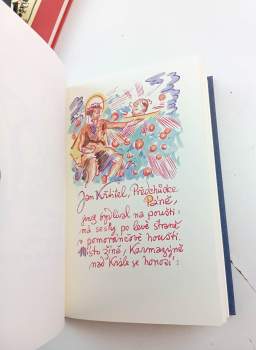 Jan Křtitel, Předchůdce
Páně,
jenž býval na poušti
má sochy po levé straně
v pomerančové houšti.
Místo žíně, Karmazýně
nad Krále se honosí: